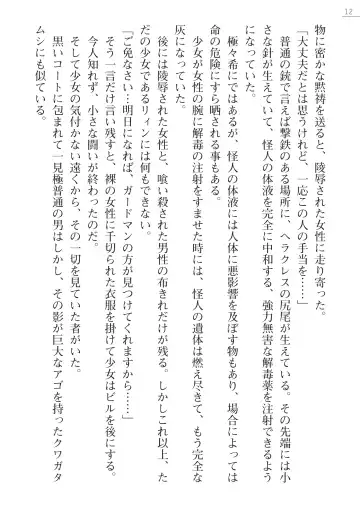 12
物に密かな黙祷を送ると、陵辱された女性に走り寄った。
「大丈夫だとは思うけれど、一応この人の手当を……」
普通の銃で言えば撃鉄のある場所に、ヘラクレスの尻尾が生えている。その先端には小
さな針が生えていて、怪人の体液を完全に中和する、強力無害な解毒薬を注射できるよう
になっていた。
極々希にではあるが、怪人の体液には人体に悪影響を及ぼす物もあり、場合によっては
命の危険にすら晒される事もある。
少女が女性の腕に解毒の注射をすませた時には、怪人の遺体は燃え尽きて、もう完全な
灰になっていた。
後には陵辱された女性と、喰い殺された男性の布きれだけが残る。しかしこれ以上、た
だの少女であるリィンには何もできない。
「ご免なさい……明日になれば、ガードマンの方が見つけてくれますから……」
そう一言だけ言い残すと、裸の女性に千切られた衣服を掛けて少女はビルを後にする。
今人知れず、小さな闘いが終わったのだ。
そして少女の気付かない遠くから、その一切を見ていた男がいた。
黒いコートに包まれて一見極普通の男はしかし、その影が巨大なアゴを持ったクワガタ
ムシにも似ている。